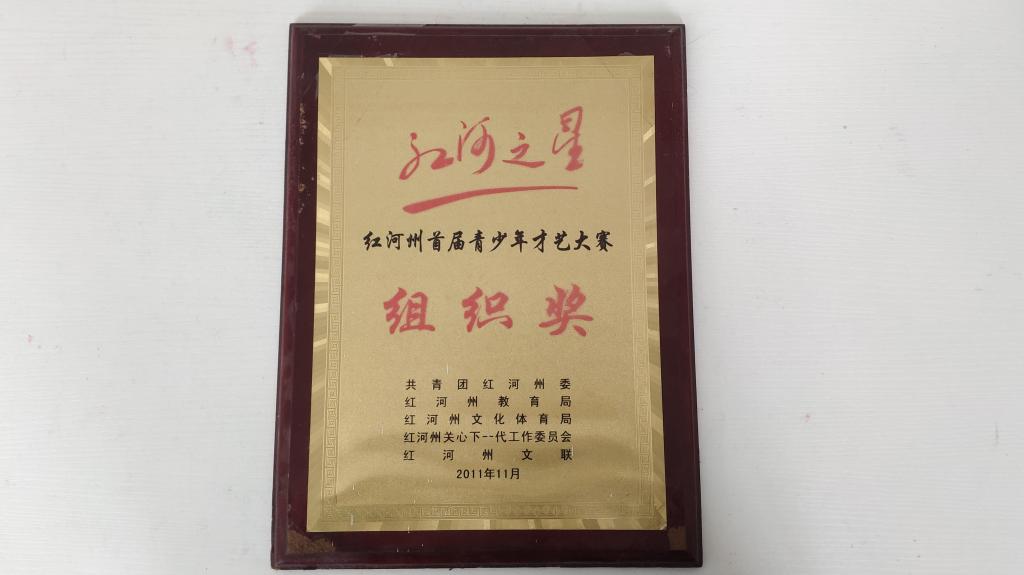 红河之星
红河州首届青少年才艺大赛
组织奖
共青团红河州委
红河州教育局
红河州文化体育局
红河州关心下--代工作委员会
红河州文联
2011年11月